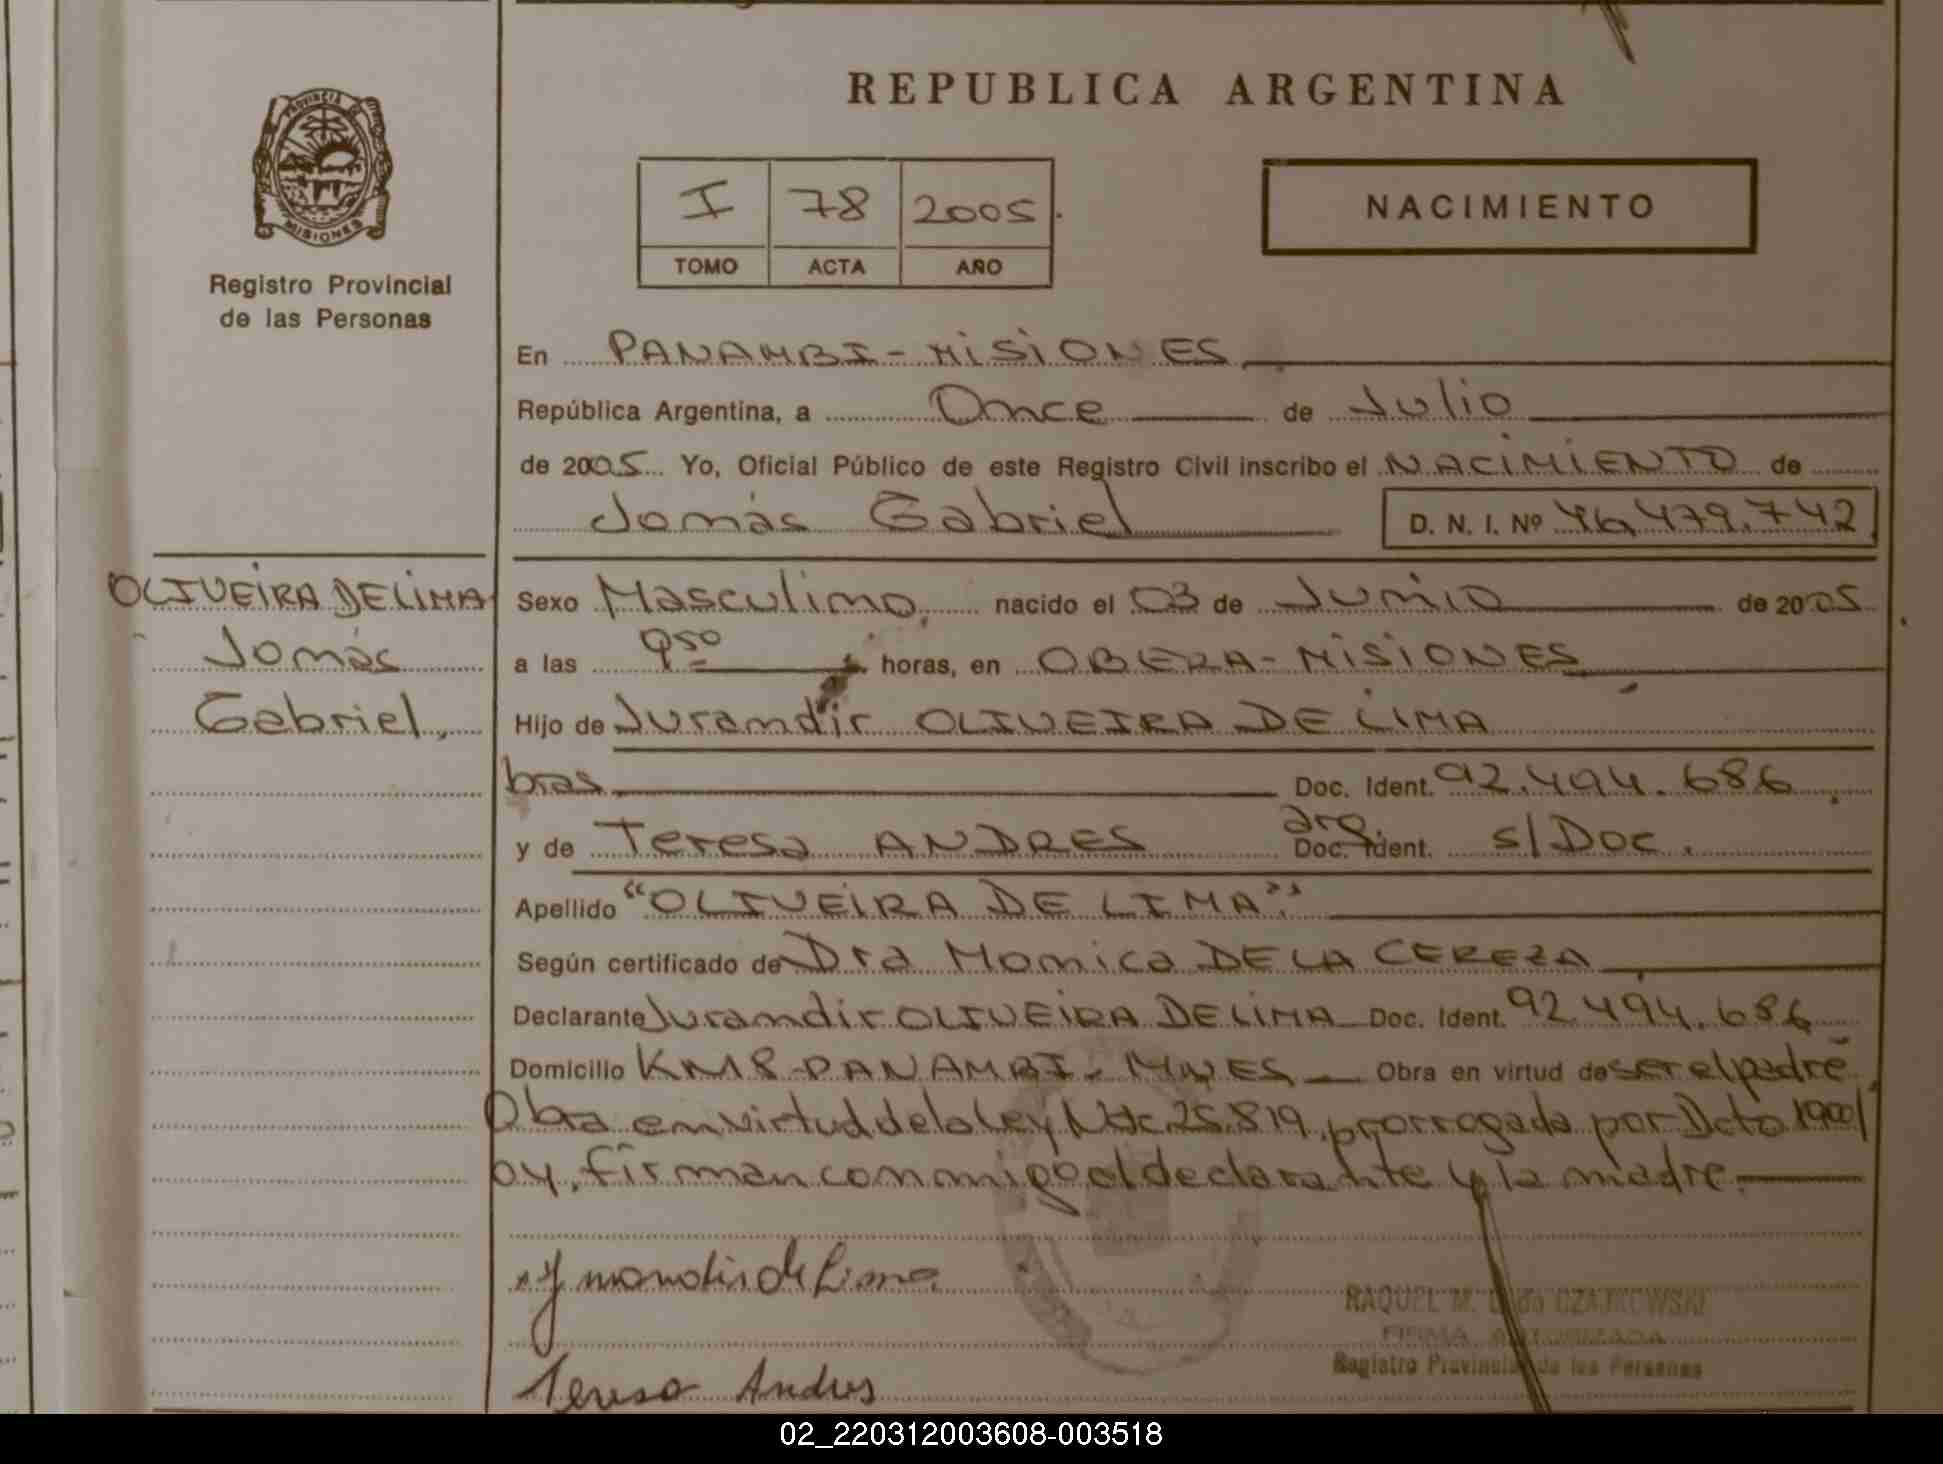 REPUBLICA ARGENTINA
PROVINCIA DE
MISIONES
Registro Provincial
de las Personas
I 78 2005.
TOMO ACTA AÑO
NACIMIENTO
En PANAMBI - MISIONES
República Argentina, a Once de Julio
de 2005 Yo, Oficial Público de este Registro Civil inscribo el NACIMIENTO de
Tomás Gabriel D. N. I. Nº 46.479.742
OLIVEIRA DE LIMA
Tomás
Gabriel,
Sexo Masculino, nacido el 03 de Junio de 2005
a las 9 50 horas, en OBERA - MISIONES
Hijo de Jurandir OLIVEIRA DE LIMA
bras. Doc. Ident. 92.494.686
y de Teresa ANDRES arg. Doc. Ident. s/Doc.
Apellido "OLIVEIRA DE LIMA".
Según certificado de Dra Monica DE LA CEREZA
Declarante Jurandir OLIVEIRA DE LIMA Doc. Ident. 92.494.686
Domicilio KM 8 - PANAMBI - MNES Obra en virtud de ser el padre
Obra en virtud de la ley 25.819, prorrogada por Dcto 1900/
04. firman conmigo el declarante y la madre.
de Lima
Teresa Andres
RAQUEL M. de CZAJKOWSKI
FIRMA AUTORIZADA
Registro Provincial de las Personas
02_220312003608-003518